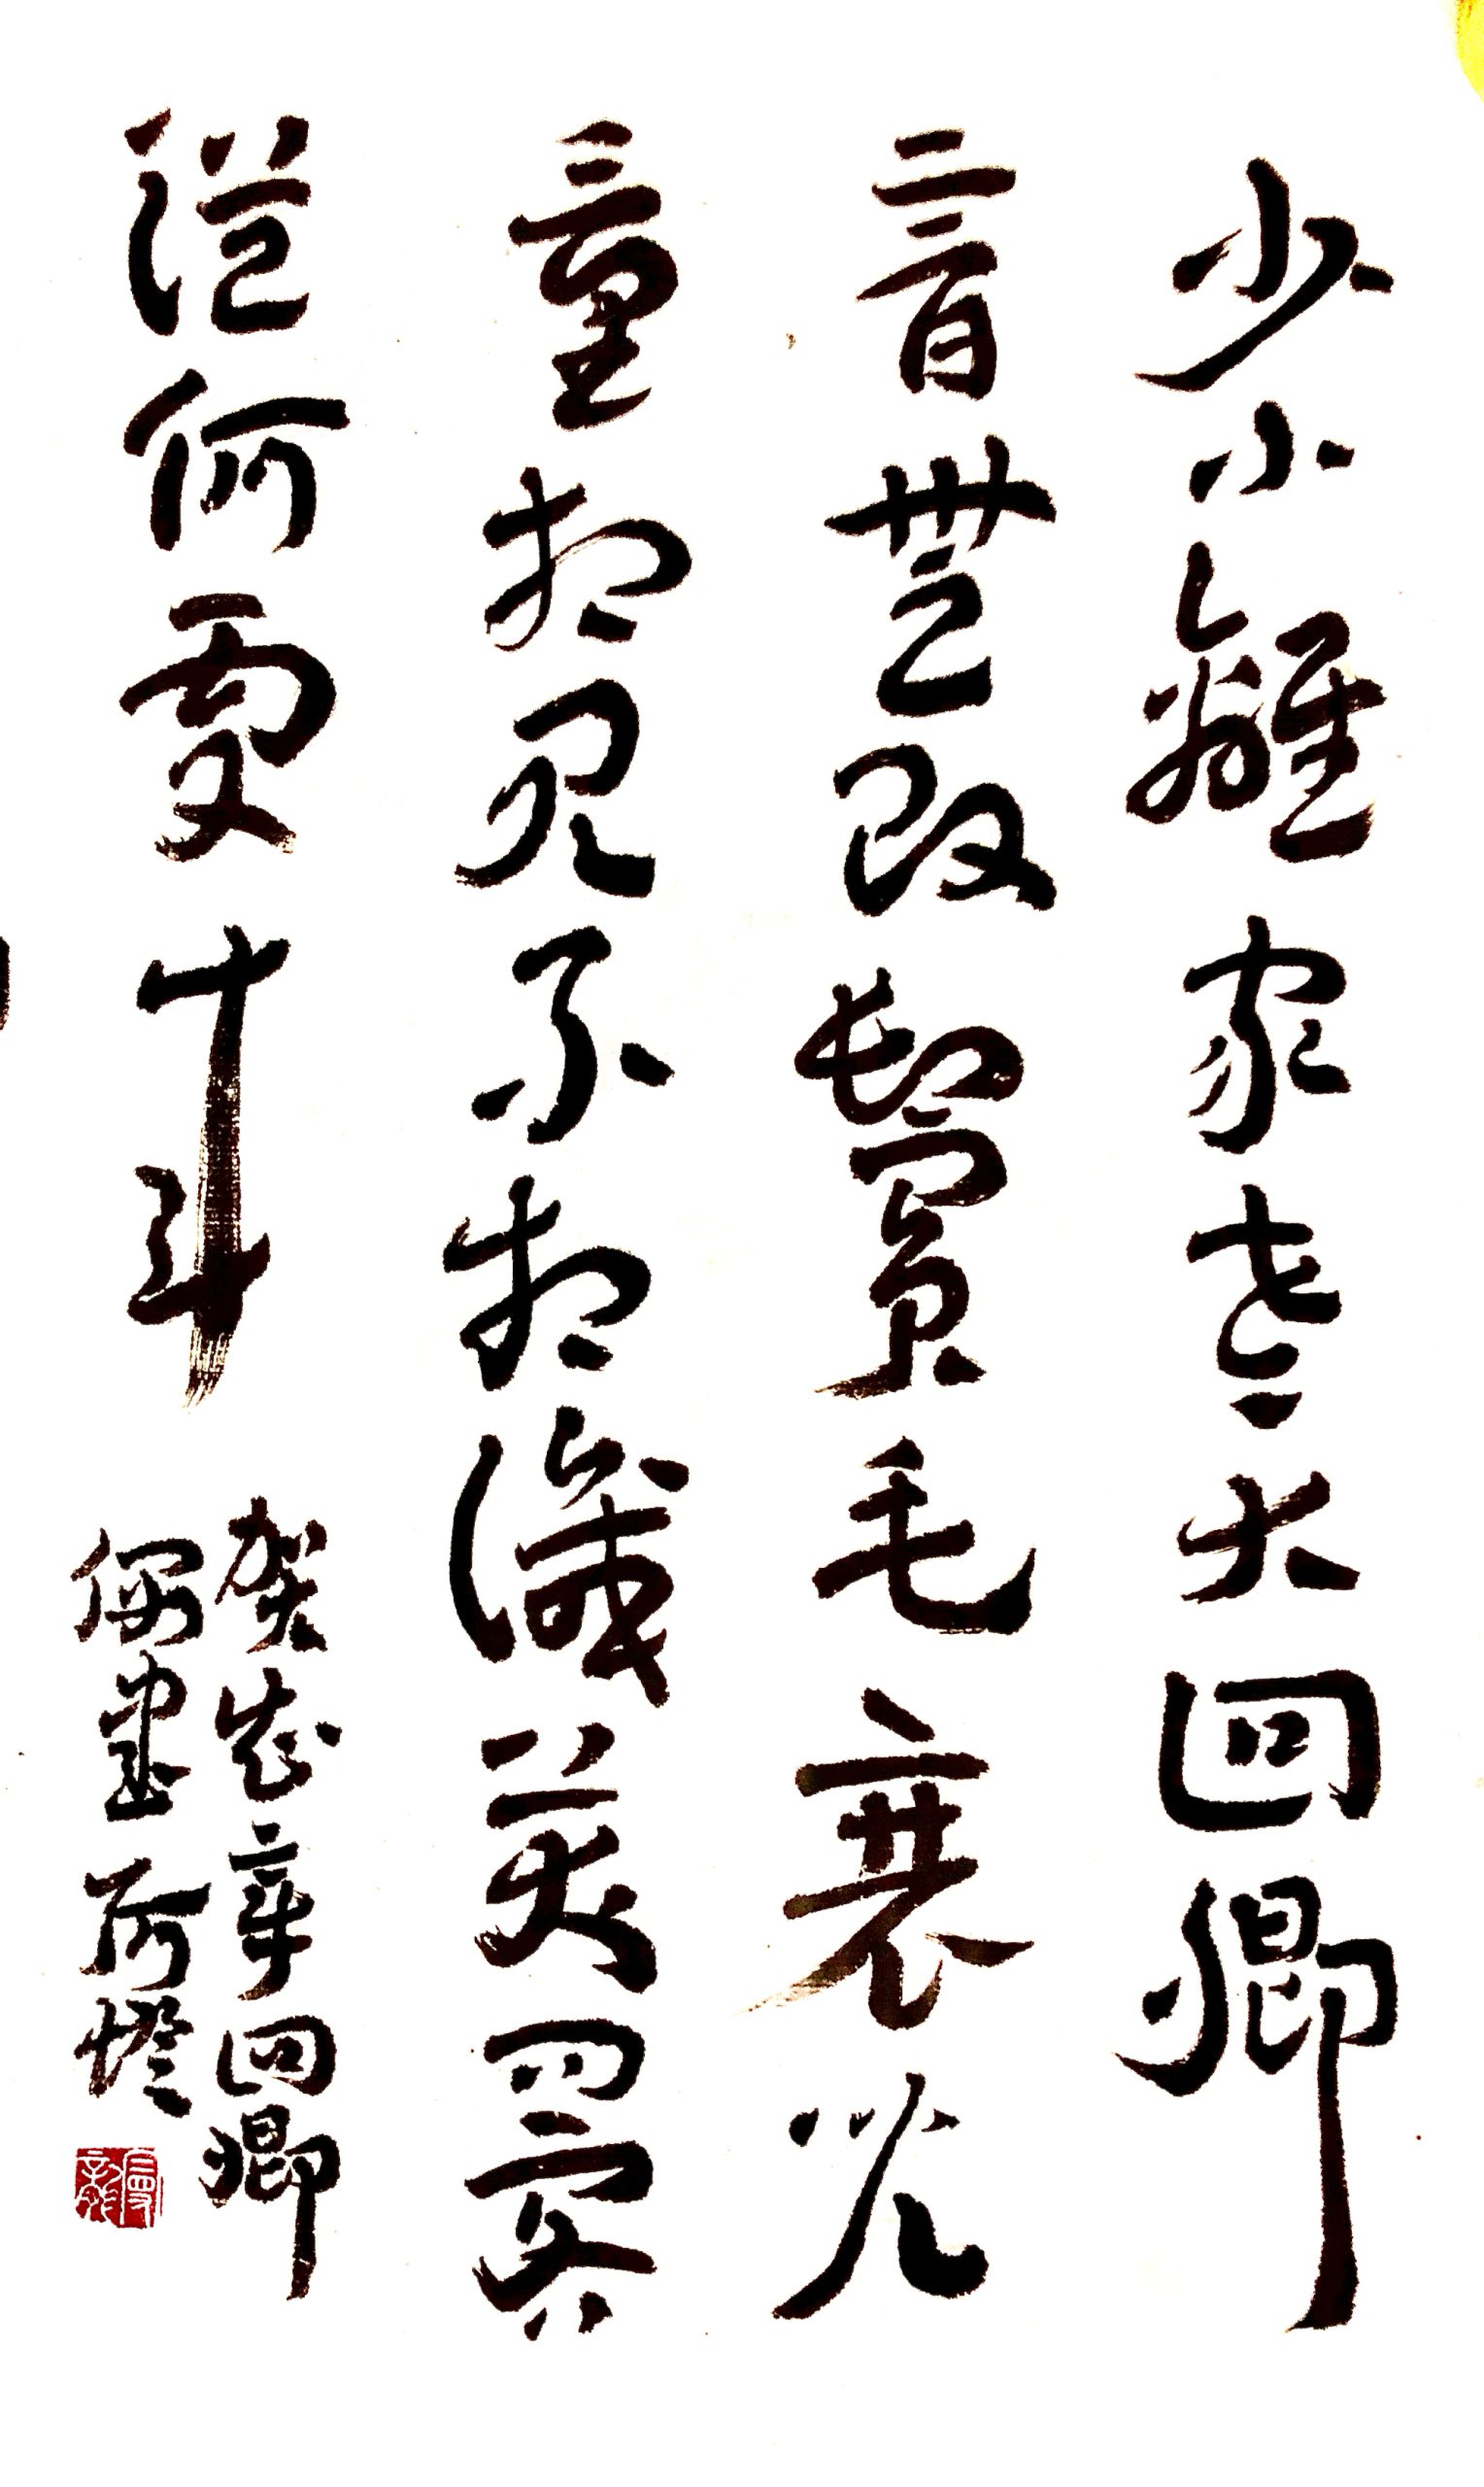 少小離家老大回鄉
音無改鬢毛衰兒
童相見不相識笑問客
從何處來
賀知章回鄉
偶書